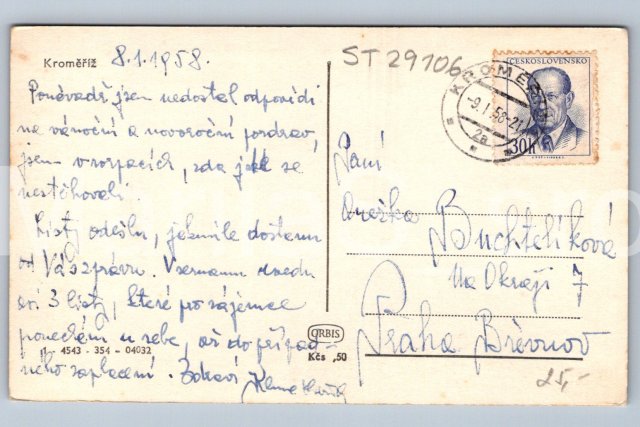 Kroměříž 8.1.1958.
Poněvadž jsem nedostal odpovědi
na vánoční a novoroční pozdrav,
jsem v rozpacích, zda jste se
nestěhovali.
Listy odešlu, jakmile dostanu
od Vás zprávu. V seznamu
3 listy, které pro zájemce
ponechám u sebe, až do případ-
ného zaplacení. Zdraví
ORBIS
Kčs ,50
4543 - 354 - 04032
ST 29106
KROMĚŘÍŽ
-9.I.58-21
2a
ČESKOSLOVENSKO
30h
Paní
Anežka
Buchtelíková
Na Okraji 7
Praha Břevnov
25,-